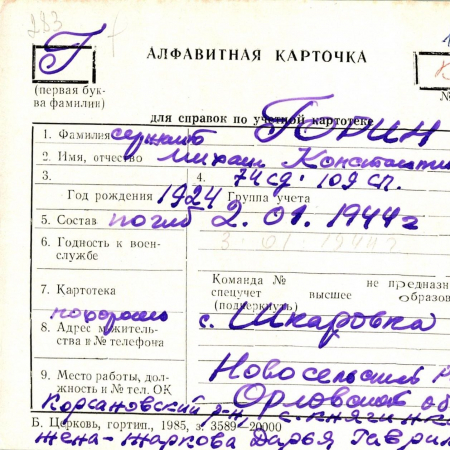 233
Г
АЛФАВИТНАЯ КАРТОЧКА
(первая бук-
ва фамилии)
№
для справок по учетной картотеке
1. Фамилия сержант ГОДИН
2. Имя, отчество Михаил Константи
3. 4. 74 сд. 109 сп.
Год рождения 1924 Группа учета
5. Состав погиб 2.01.1944 г
3.01.1944 г
6. Годность к воен-
службе
Команда № не предназн
7. Картотека спецучет высшее образов
(подчеркнуть)
похоронен с. Шкаровка
8. Адрес м/житель-
ства и № телефона
9. Место работы, дол-
жность и № тел. ОК
Новосельский
Орловская об
Корсановский р-н, с.
Б. Церковь, гортип., 1985, з. 3589—20000
жена - Жаркова Дарья Гаврил